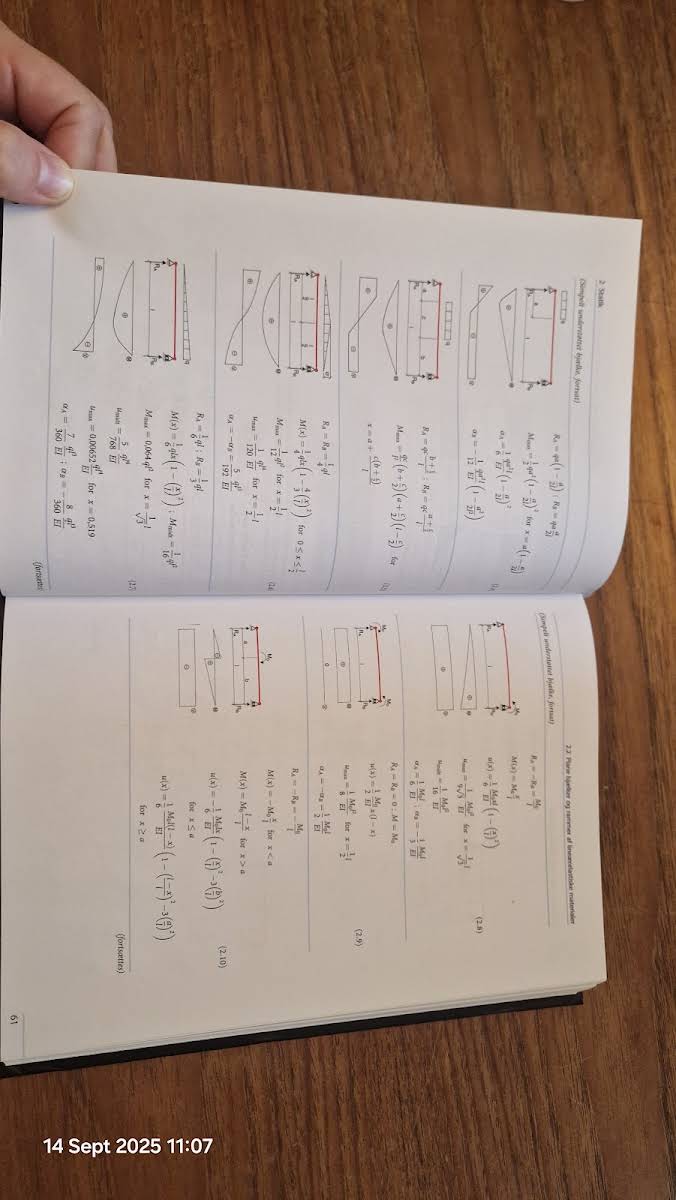 2 Statik
(Simpelt understøttet bjælke, fortsat)
R_A = qa(1 − a/2l) ; R_B = qa a/2l
M_max = 1/2 qa²(1 − a/2l)² for x = a(1 − a/2l)
α_A = 1/6 qa²l/EI (1 − a/2l)²
α_B = − 1/12 qa²l/EI (1 − a²/2l²)
R_A = qc (b + c/2)/l ; R_B = qc (a + c/2)/l
M_max = qc/l (b + c/2)(a + c/2)(1 − c/2l) for
x = a + c(b + c/2)/l
R_A = R_B = 1/4 ql
M(x) = 1/4 qlx(1 − 4/3 (x/l)²) for 0 ≤ x ≤ l/2
M_max = 1/12 ql² for x = l/2
u_max = 1/120 ql⁴/EI for x = 1/2 l
α_A = −α_B = 5/192 ql³/EI
(2.6)
R_A = 1/6 ql ; R_B = 1/3 ql
M(x) = 1/6 qlx(1 − (x/l)²) ; M_midt = 1/16 ql²
M_max = 0,064 ql² for x = 1/√3 l
u_midt = 5/768 ql⁴/EI
u_max = 0,00652 ql⁴/EI for x = 0,519
α_A = 7/360 ql³/EI ; α_B = − 8/360 ql³/EI
(2.7)
(fortsættes)
2.2 Plane bjælker og rammer af lineærelastiske materialer
(Simpelt understøttet bjælke, fortsat)
R_A = −R_B = M₀/l
M(x) = M₀ x/l
u(x) = 1/6 M₀xl/EI (1 − (x/l)²)
u_max = 1/9√3 M₀l²/EI for x = 1/√3 l
u_midt = 1/16 M₀l²/EI
α_A = 1/6 M₀l/EI ; α_B = − 1/3 M₀l/EI
(2.8)
R_A = R_B = 0 ; M = M₀
u(x) = 1/2 M₀/EI x(l − x)
u_max = 1/8 M₀l²/EI for x = 1/2 l
α_A = −α_B = 1/2 M₀l/EI
(2.9)
R_A = −R_B = − M₀/l
M(x) = −M₀ x/l for x < a
M(x) = M₀ (l − x)/l for x > a
u(x) = − 1/6 M₀lx/EI (1 − (x/l)² − 3(b/l)²)
for x ≤ a
u(x) = 1/6 M₀l(l − x)/EI (1 − ((l − x)/l)² − 3(a/l)²)
for x ≥ a
(2.10)
(fortsættes)
61
14 Sept 2025 11:07